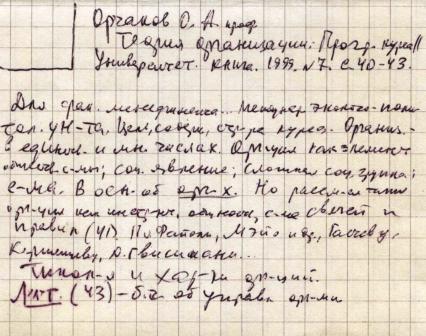 Орчаков О. А. проф.
Теория организации: Прогр. курса //
Университет. книга. 1999. №7. С. 40-43.
Для фак. менеджмента... Междунар.
ун-та. Цели, содер., курса. Организ.
в единств. и мн. числах. Орг-ция как элемент
обществ. с-мы; соц. явление; сложная соц. группа;
с-ма. В осн. об орг-х. Но рассм-
орг-ция как инстр-т, общность, с-ма связей и
правил (41) По Фатсон, Мэйо и др., Гастеву,
Керженцеву, А. Гвишиани...
Типол-я и хар-ки орг-ций.
Лит. (43) – б.ч. об управл. орг-ми